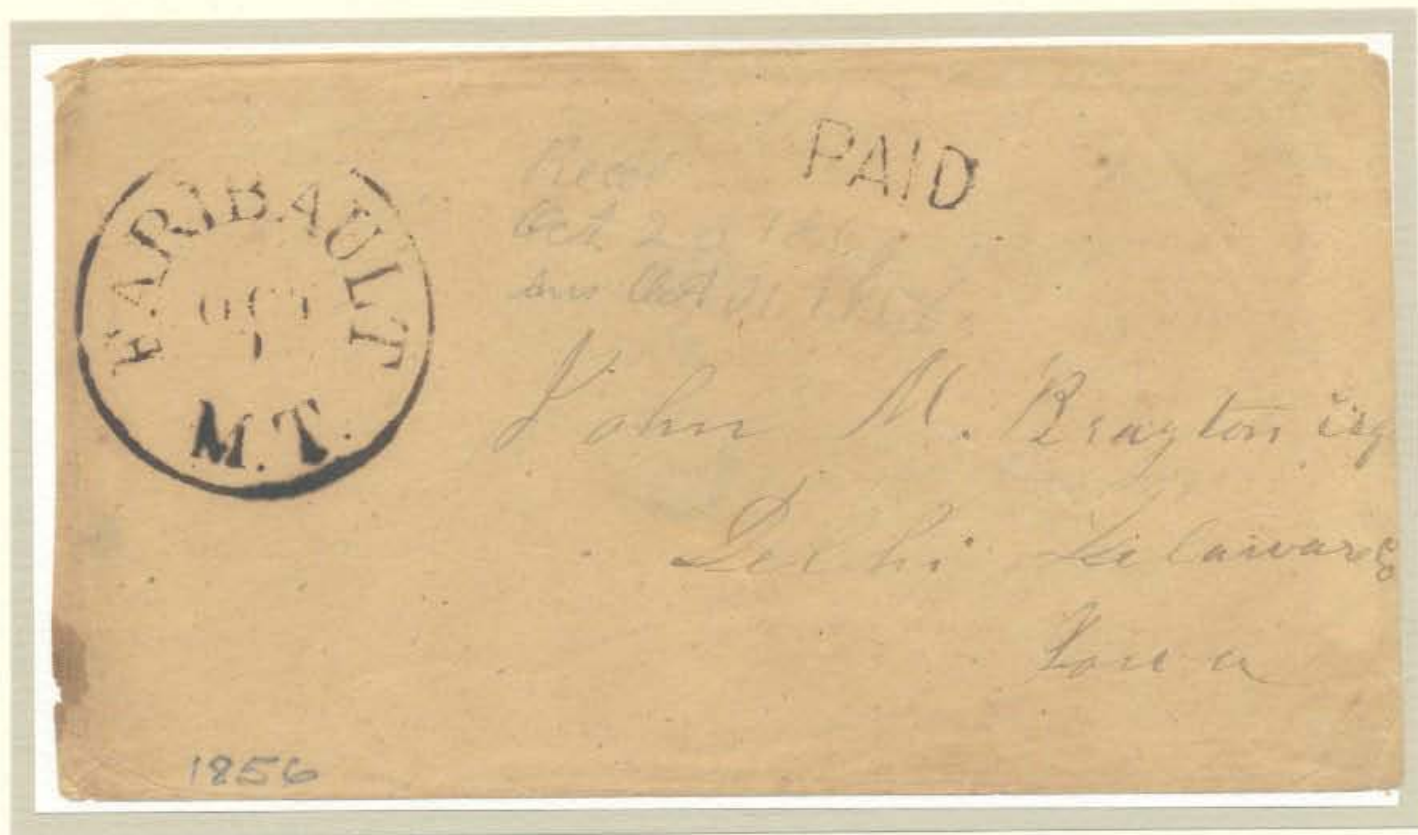 FARIBAULT
OCT
1
M.T.
PAID
Recd
Oct 2
ans Oct 21
John M. Brayton Esq
Delhi Delaware Co
Iowa
1856